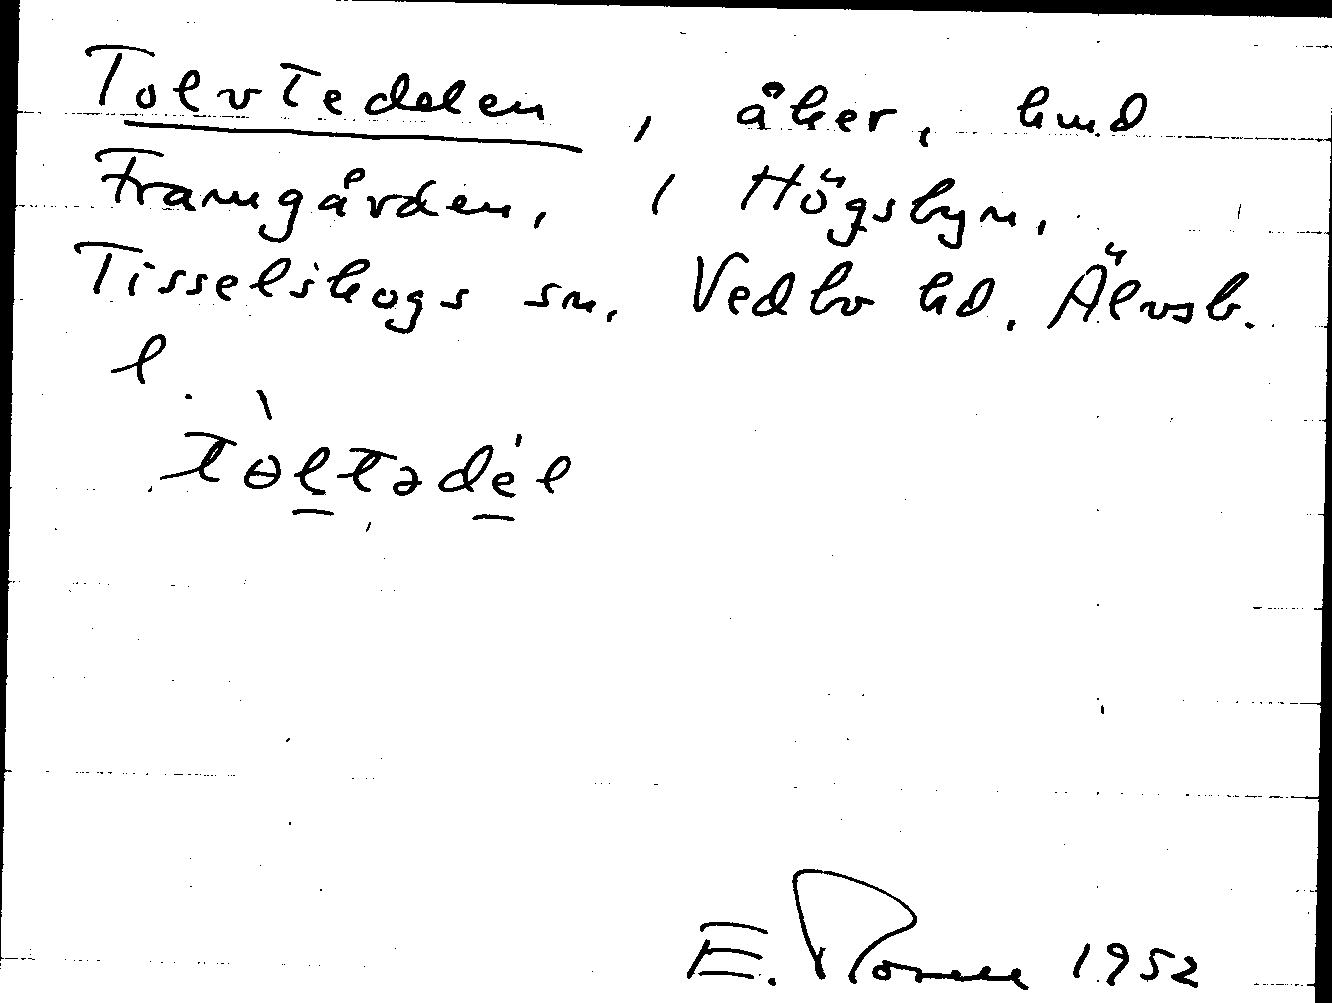 Tolvtedelen, åker, hmd
Framgården, i Högsbyn.
Tisselskogs sn. Vedbo hd. Älvsb.
l.
tɵ̀ltədél
E. 1952